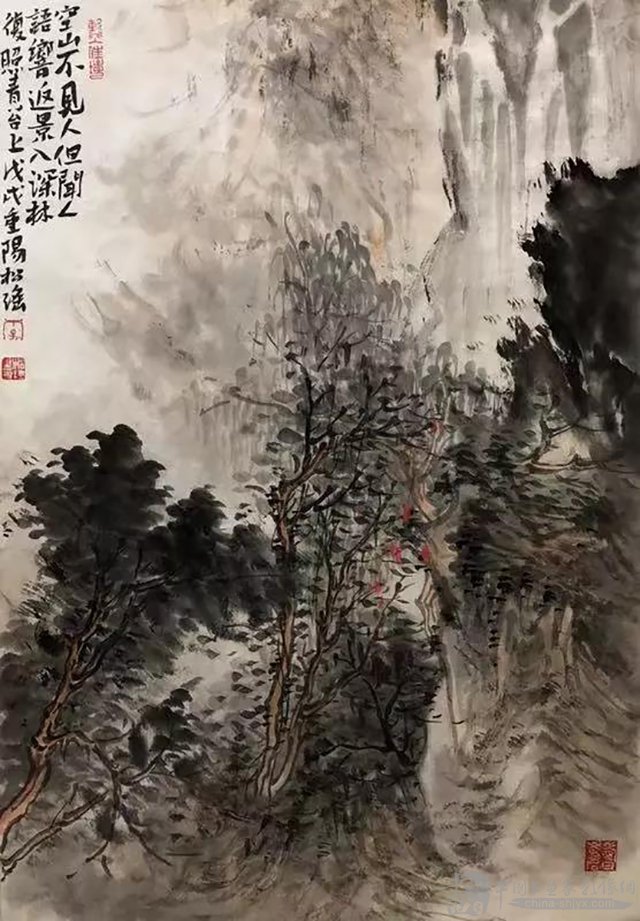 空山不見人但聞人
語響返景入深林
復照青苔上戊戌重陽松瑤
china-shjyx.com